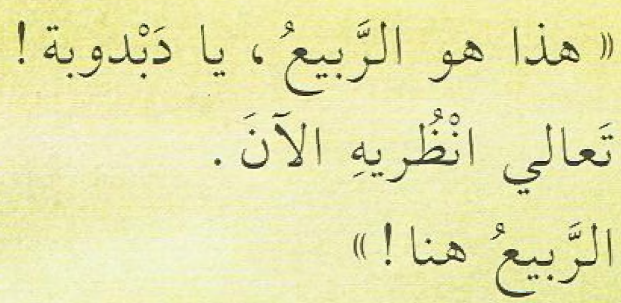 « هذا هو الرَّبيعُ، يا دَبْدوبة!
تَعالي انْظُريهِ الآنَ.
الرَّبيعُ هنا!»